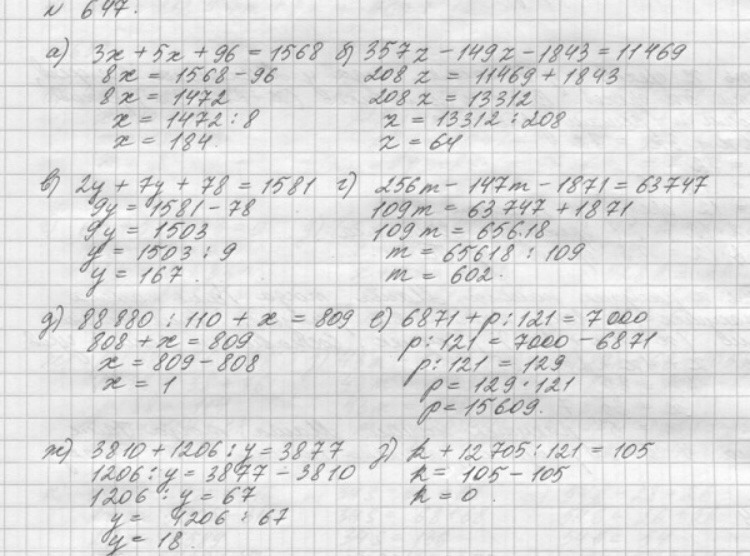 № 647.
а) 3x + 5x + 96 = 1568
8x = 1568 - 96
8x = 1472
x = 1472 : 8
x = 184.
б) 357z - 149z - 1843 = 11469
208z = 11469 + 1843
208z = 13312
z = 13312 : 208
z = 64
в) 2y + 7y + 78 = 1581
9y = 1581 - 78
9y = 1503
y = 1503 : 9
y = 167.
г) 256m - 147m - 1871 = 63747
109m = 63747 + 1871
109m = 65618
m = 65618 : 109
m = 602.
д) 88880 : 110 + x = 809
808 + x = 809
x = 809 - 808
x = 1
е) 6871 + p : 121 = 7000
p : 121 = 7000 - 6871
p : 121 = 129
p = 129 · 121
p = 15609.
ж) 3810 + 1206 : y = 3877
1206 : y = 3877 - 3810
1206 : y = 67
y = 1206 : 67
y = 18.
з) k + 12705 : 121 = 105
k = 105 - 105
k = 0.